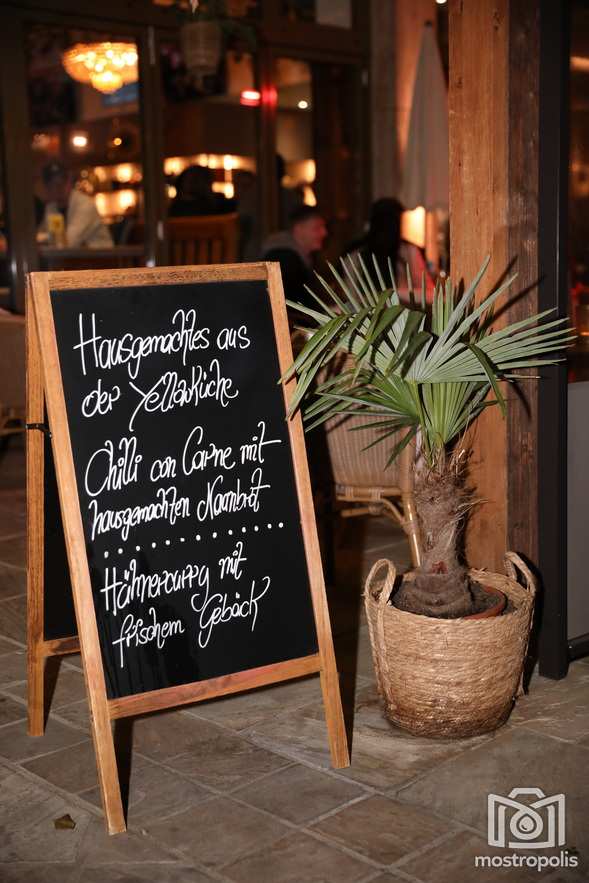 Hausgemachtes aus
der Yellaküche
Chilli con Carne mit
hausgemachten Naanbrot
Hühnercurry mit
frischem Gebäck
mostropolis